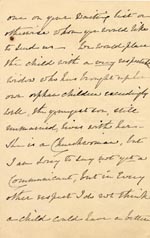 one on your Waiting list or
otherwise whom you would like
to send us - We would place
the child with a very respectable
widow who has brought up her
own orphan children exceedingly
well, the youngest son, still
unmarried, lives with her -
She is a Churchwoman, but
I am sorry to say not yet a
Communicant, but in every
other respect I do not think
a child could have a better